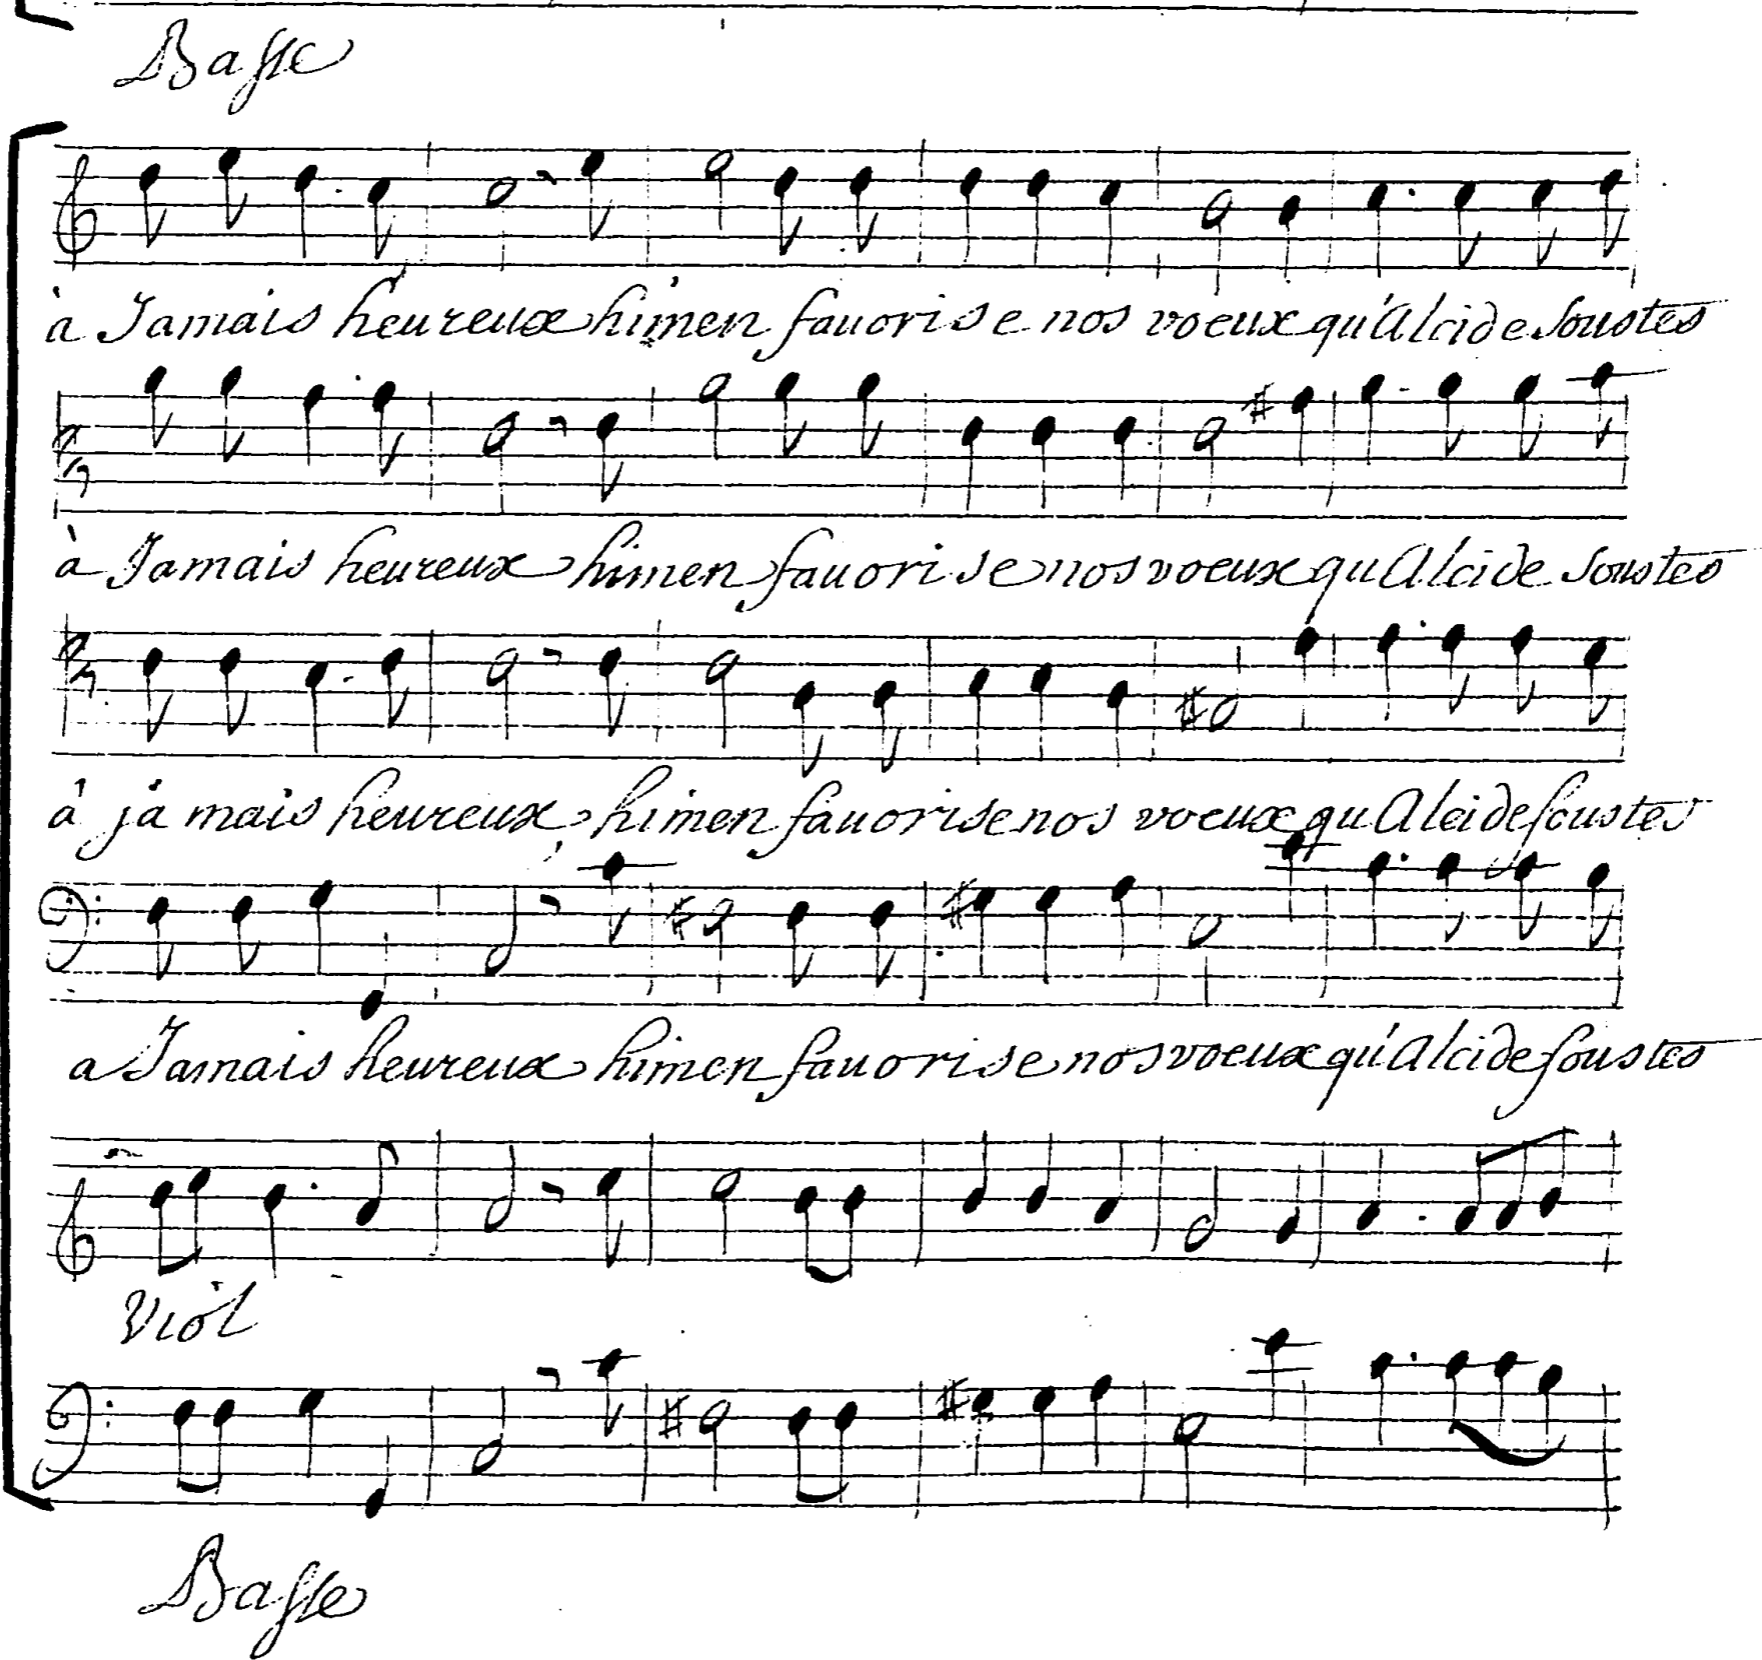 Basse
à Jamais heureux himen fauorise nos voeux qu'Alcide sous tes
à Jamais heureux himen fauorise nos voeux qu Alcide sous tes
à ja mais heureux, himen fauorise nos voeux qu Alcide sous tes
a Jamais heureux himen fauorise nos voeux qu'Alcide sous tes
Viol
Basse